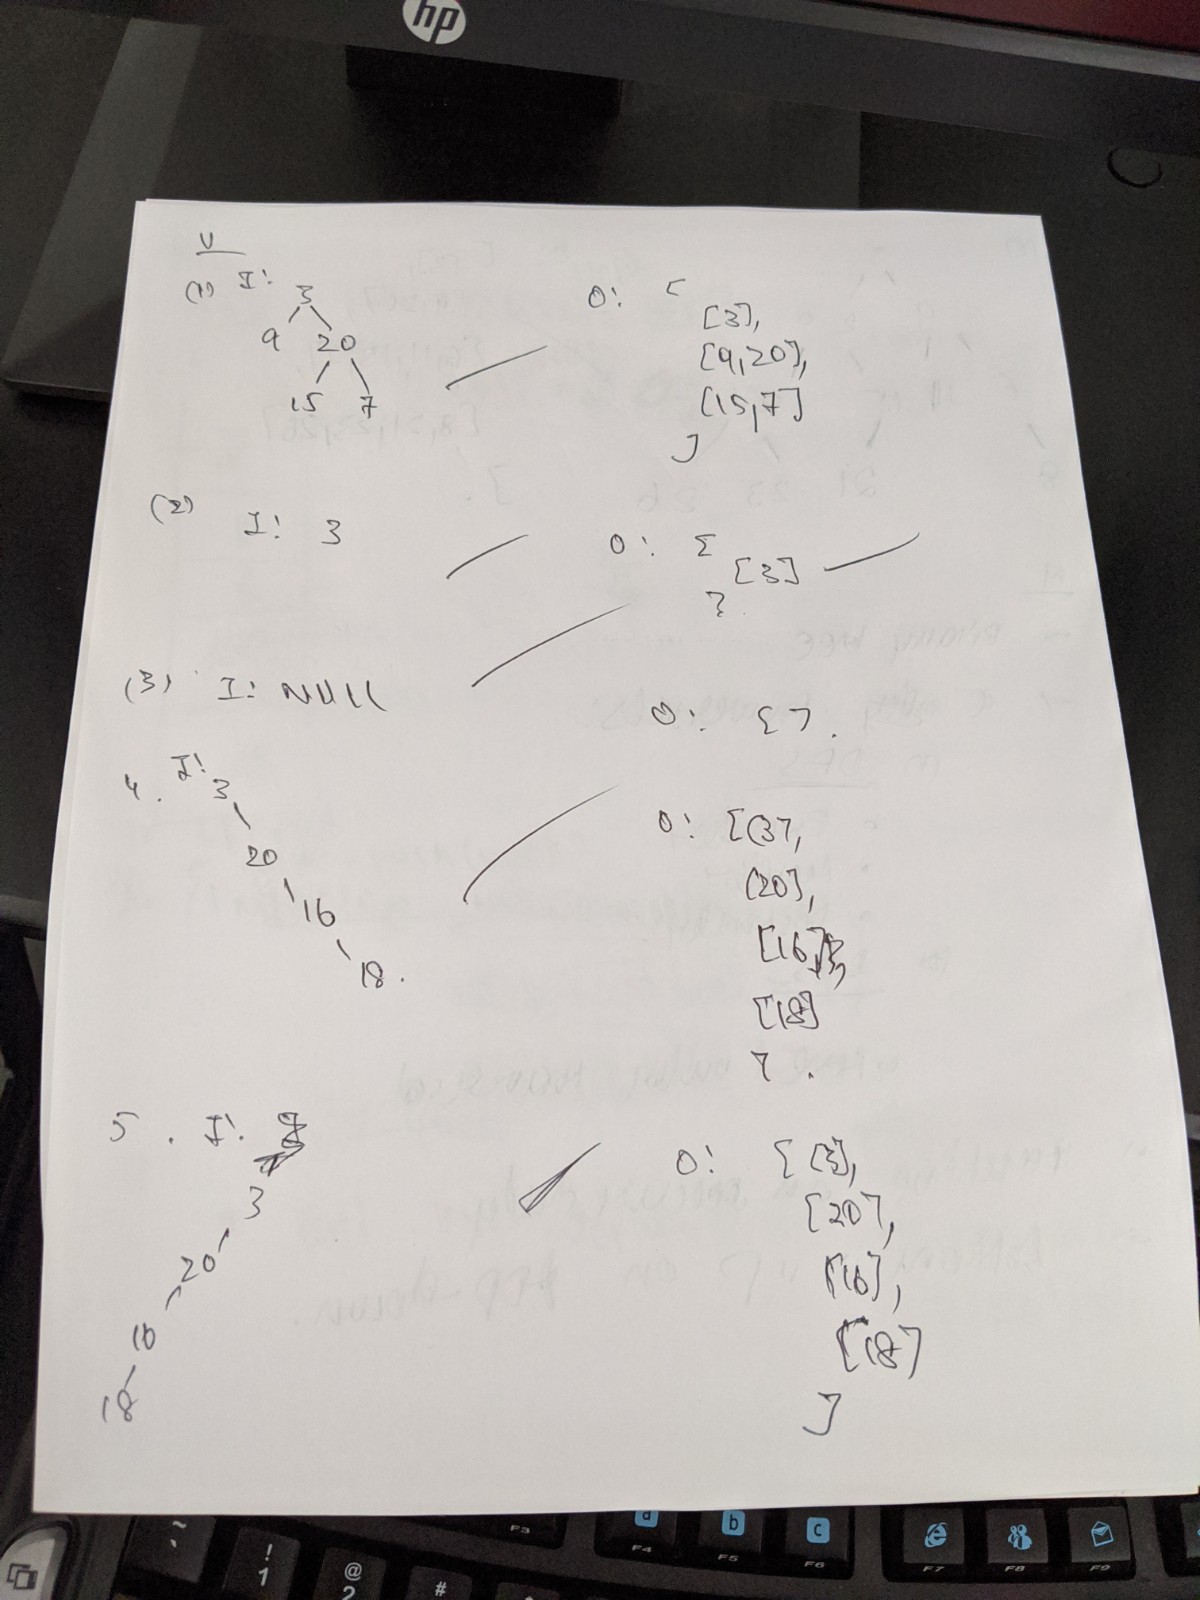 hp
U
(1) I: 3
9 20
15 7
O: [
[3],
[9,20],
[15,7]
]
(2) I: 3
O: [
[3]
]
(3) I: NULL
O: [].
4. I: 3
20
16
18.
O: [[3],
[20],
[16],
[18]
].
5. I:
3
20
16
18
O: [[3],
[20],
[16],
[18]
]
~
!
1
@
2
#
F3
a
F4
b
F5
c
F6
F7
F8
F9